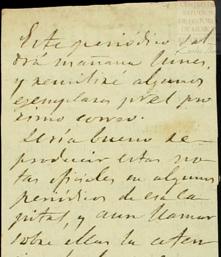 Este periódico sal
drá mañana lunes,
y remitiré algunos
ejemplares p.r el pró
ximo correo.
Sería bueno re-
producir estas no-
tas oficiales en algunos
periódicos de esa ca
pital, y aun llamar
sobre ellas la aten